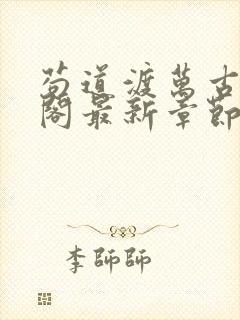 苟道渡萬古
閣最新章節
李師師